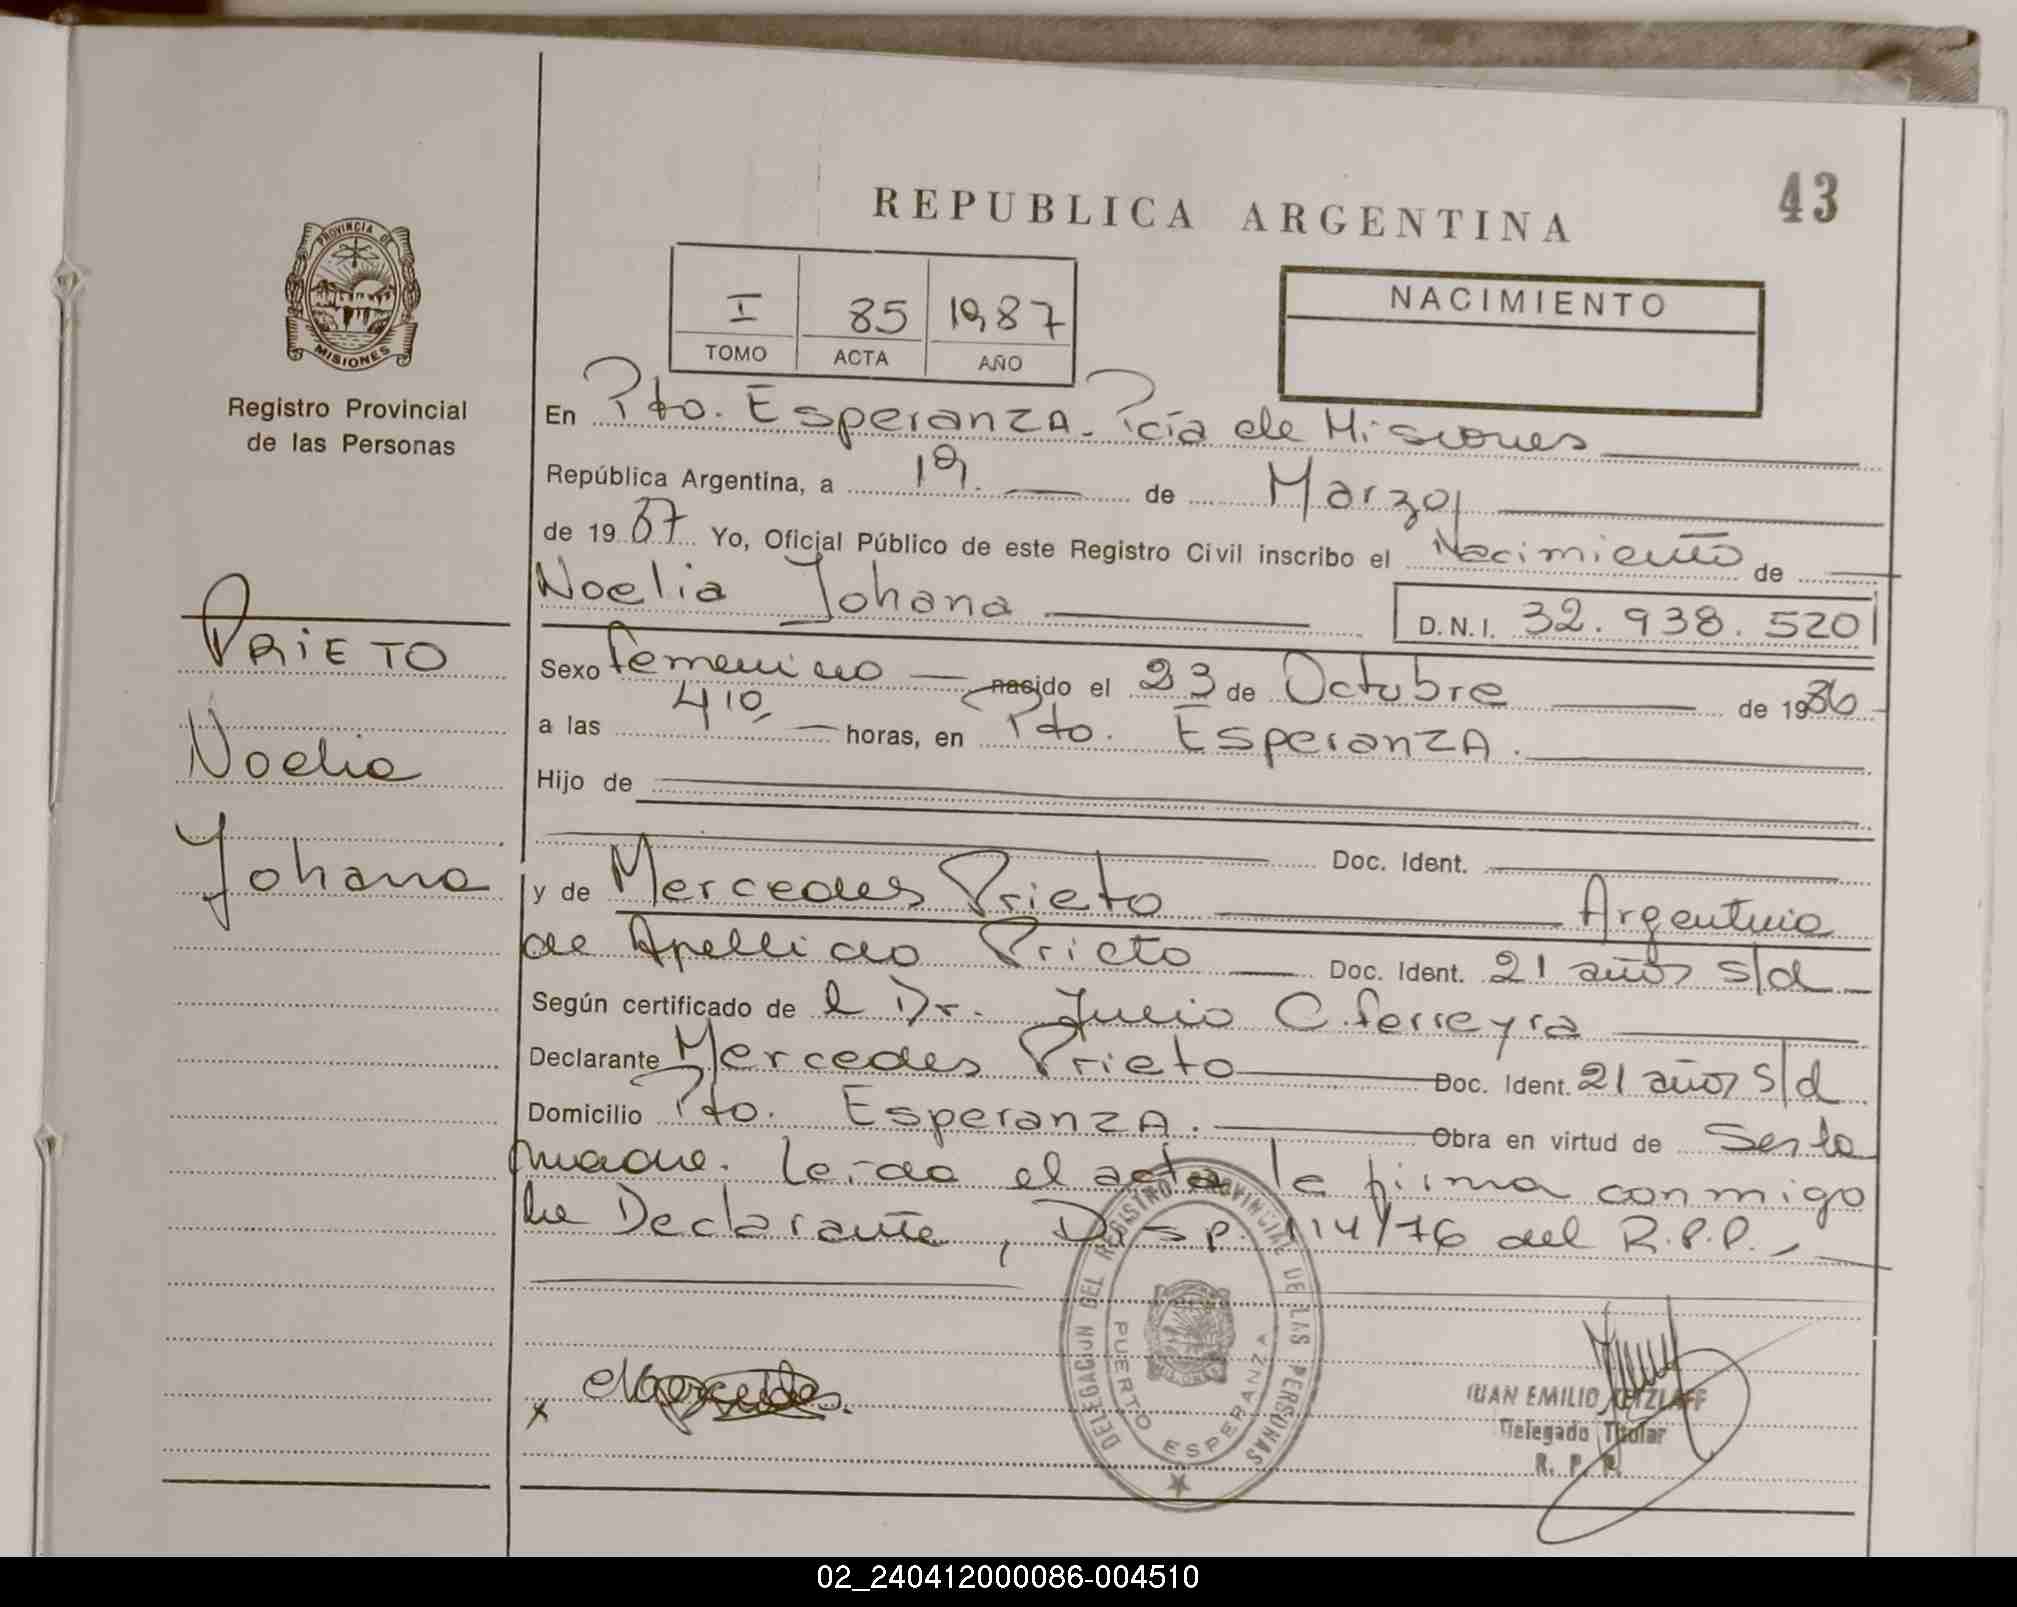 REPUBLICA ARGENTINA
43
PROVINCIA DE
MISIONES
Registro Provincial
de las Personas
I 85 1987
TOMO ACTA AÑO
NACIMIENTO
En Pto. Esperanza. Pcia de Misiones
República Argentina, a 19. de Marzo,
de 19 87 Yo, Oficial Público de este Registro Civil inscribo el Nacimiento de
Noelia Johana
D.N.I. 32.938.520
PRIETO
Noelia
Johana
Sexo femenino nacido el 23 de Octubre de 1986
a las 4 10, horas, en Pto. Esperanza.
Hijo de
Doc. Ident.
y de Mercedes Prieto Argentina
de Apellido Prieto Doc. Ident. 21 años s/d
Según certificado de l Dr. Julio C. ferreyra
Declarante Mercedes Prieto Doc. Ident. 21 años s/d
Domicilio Pto. Esperanza. Obra en virtud de Ser la
madre. Leída el acta la firma conmigo
la Declarante, Disp. 114/76 del R.P.P.
DELEGACION DEL REGISTRO PROVINCIAL DE LAS PERSONAS
PUERTO ESPERANZA
x Mercedes.
JUAN EMILIO
Delegado Titular
R. P. P.
02_240412000086-004510